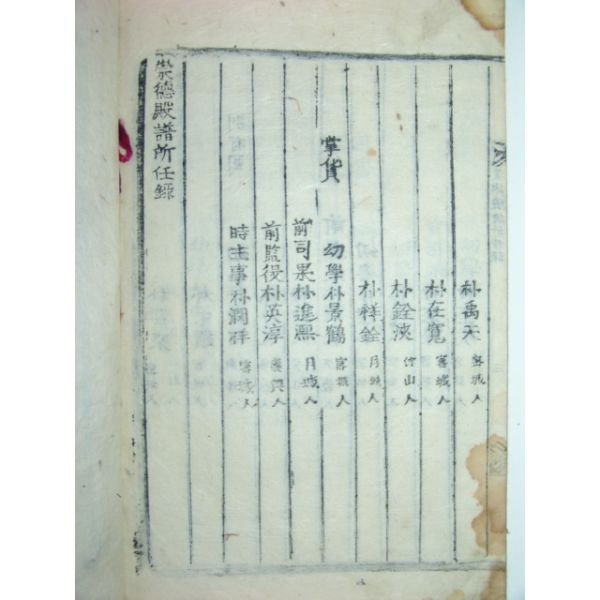 朴禹天 密城人
朴在寬 密城人
朴銓浹 竹山人
朴祥銓 月城人
掌貨
幼學朴景鶴 密城人
前司果朴進熙 月城人
前監役朴英淳 人
時主事朴潤祥 密城人
崇德殿譜所任錄